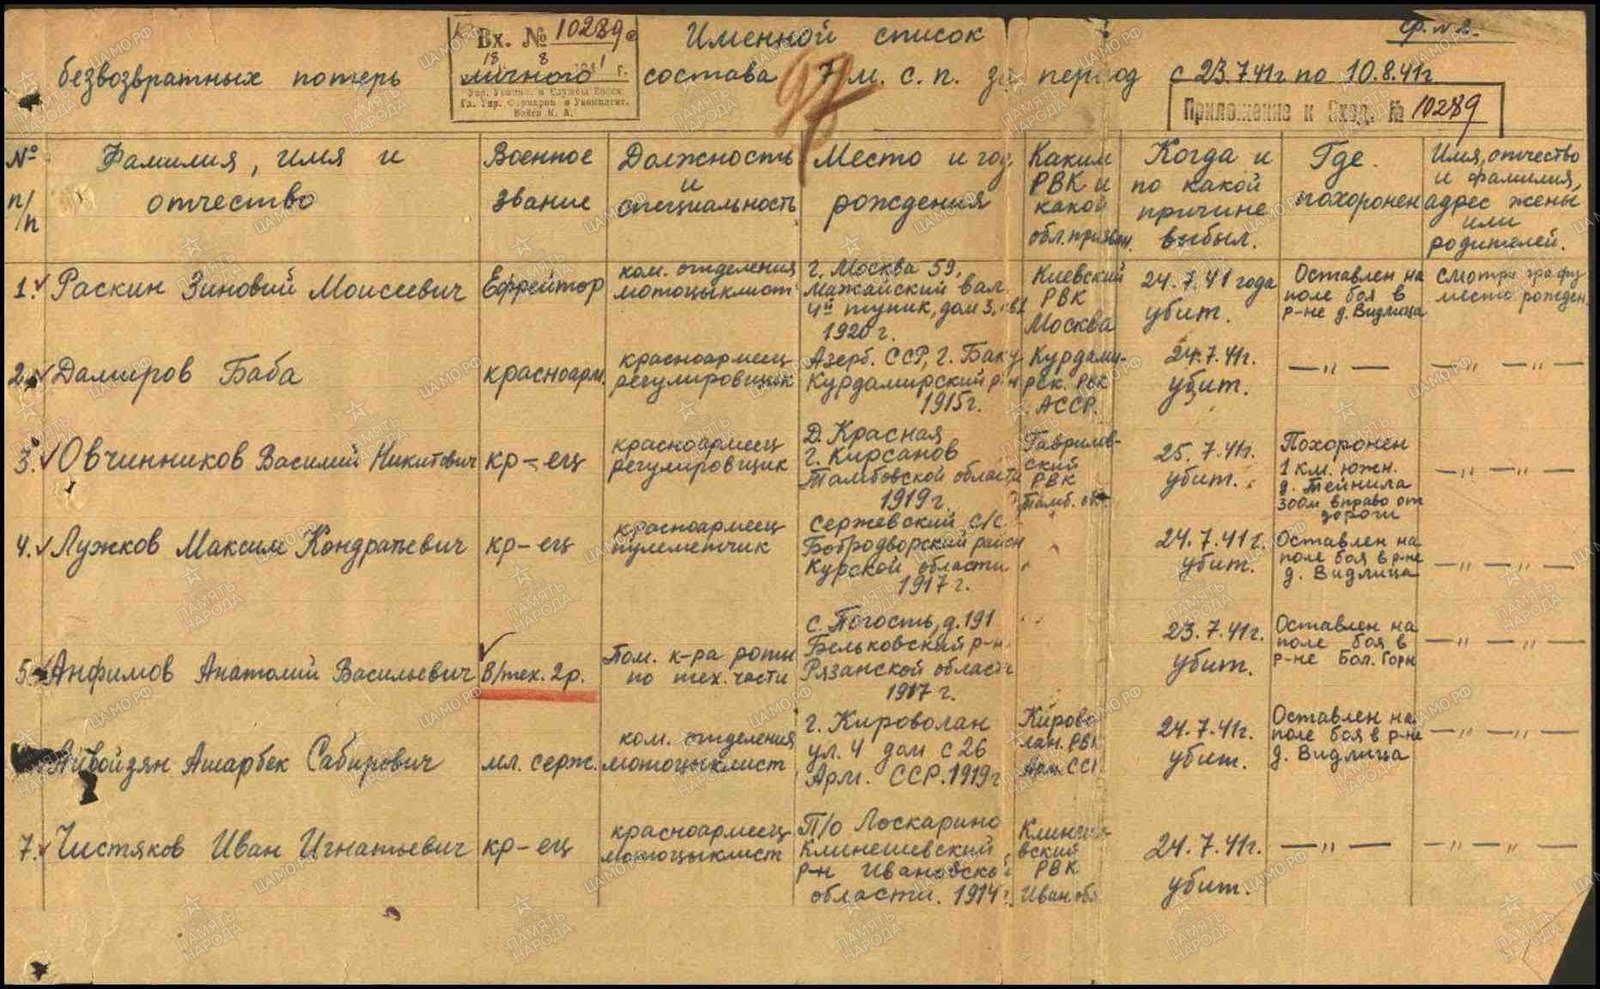 Вх. № 10289с
18 8 1941 г.
Упр. Укомпл. и Службы Войск
Гл. Упр. Формиров. и Укомплект.
Войск К. А.
Ф. № 2.
Именной список
безвозвратных потерь личного состава 7 м. с. п. за период с 23.7.41г по 10.8.41г
97
Приложение к вход. № 10289
№ п/п
Фамилия, имя и отчество
Военное звание
Должность и специальность
Место и год рождения
Каким РВК и какой обл. призван.
Когда и по какой причине выбыл.
Где похоронен
Имя, отчество и фамилия, адрес жены или родителей.
1. Раскин Зиновий Моисеевич
Ефрейтор
ком. отделения
мотоциклист
г. Москва 59,
Мажайский вал.
4й тупик, дом 3,
1920 г.
Киевский
РВК
Москва
24.7.41 года
убит.
Оставлен на
поле боя в
р-не д. Видлица
смотри графу
место рожден.
2. Дамиров Баба
красноарм.
красноармеец
регулировщик
Азерб. ССР, г. Баку
Курдамирский р-н
1915г.
Курдами-
рск. РВК
АССР.
24.7.41г.
убит.
— " —
— " — " —
3. Овчинников Василий Никитович
кр-ец
красноармеец
регулировщик
Д. Красная
г. Кирсанов
Тамбовской области
1919г.
Гаврилов-
ский
РВК
Тамб. обл.
25.7.41г.
убит.
Похоронен
1 км. южн.
д. Тейнила
300м вправо от
дороги
— " — " —
4. Лужков Максим Кондратьевич
кр-ец
красноармеец
пулеметчик
Сержевский с/с
Бобродворский район
Курской области
1917 г.
"
24.7.41г.
убит.
Оставлен на
поле боя в р-не
д. Видлица
— " — " —
5. Анфимов Анатолий Васильевич
В/тех. 2р.
Пом. к-ра роты
по тех. части
с. Погость, д. 191
Бельковский р-н.
Рязанской области
1917 г.
23.7.41г.
убит.
Оставлен на
поле боя в
р-не Бол. Горы
— " — " —
Айвойзян Ашарбек Сабирович
мл. серж.
ком. отделения
мотоциклист
г. Кироволан
ул. 4 дом с 26
Арм. ССР. 1919г
Кирово
лан. РВК
Арм. ССР
24.7.41г.
убит.
Оставлен на
поле боя в р-не
д. Видлица
— " — " —
7. Чистяков Иван Игнатьевич
кр-ец
красноармеец
мотоциклист
П/о Лоскарино
Клинешевский
р-н Ивановской
области. 1914г.
РВК
Иван обл
24.7.41г.
убит.
— " —
— " — " —
ПАМЯТЬ НАРОДА
ЦАМО.РФ